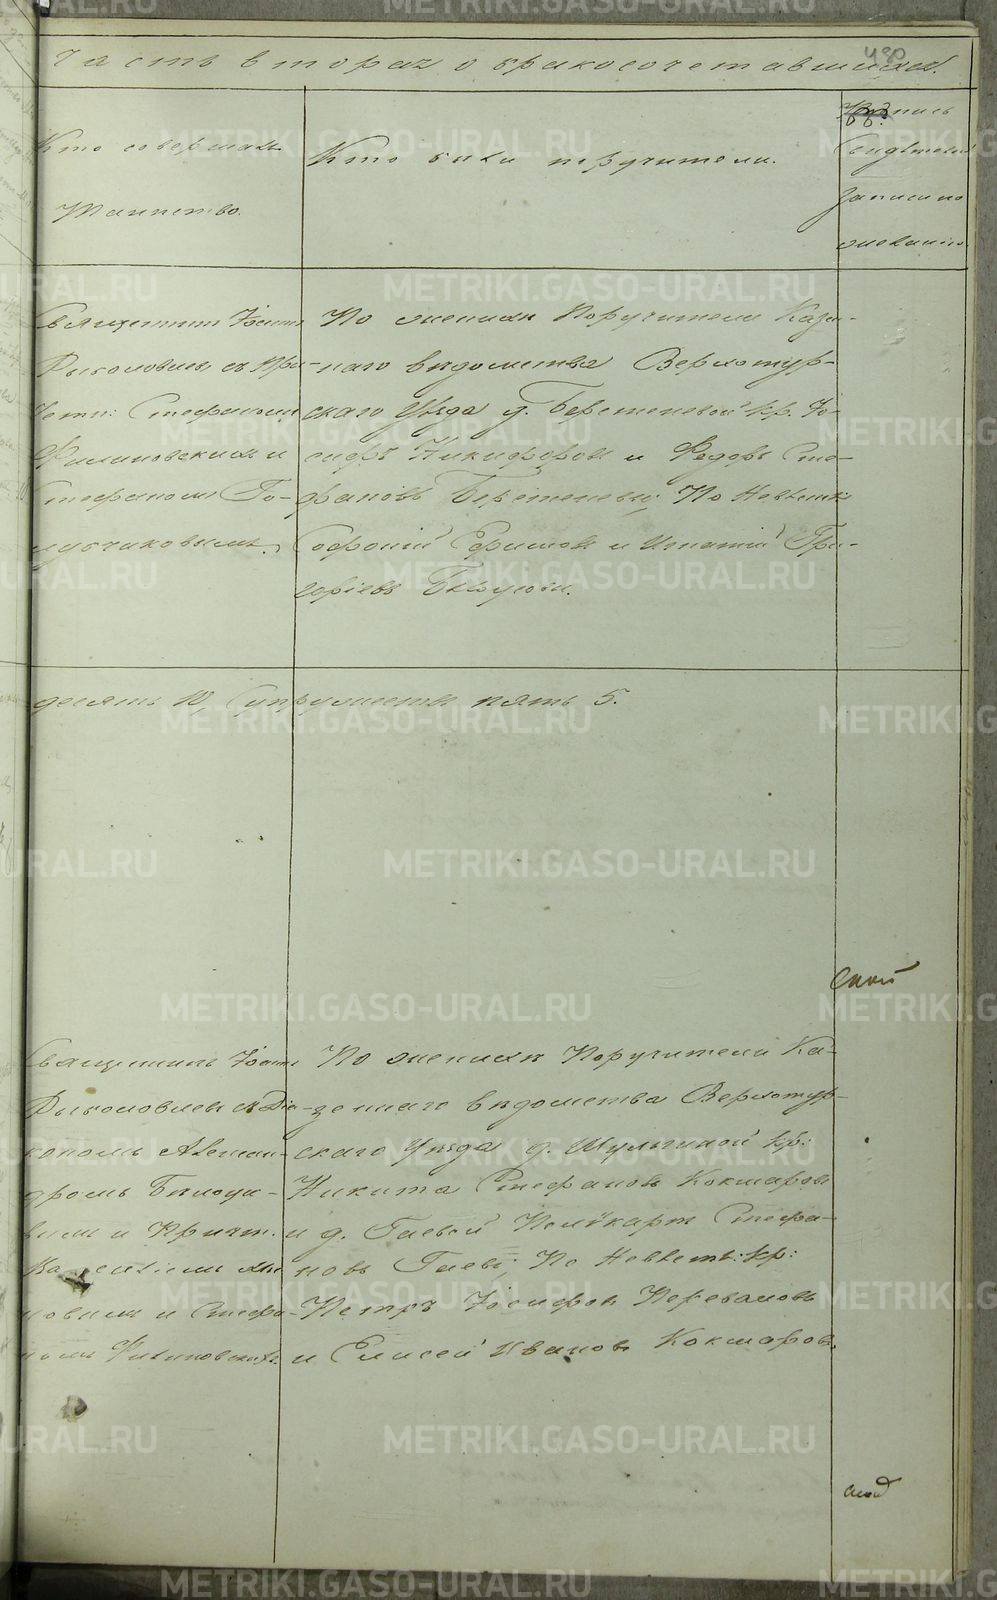 480
Часть вторая о бракосочетавшихся.
Кто совершалъ
Таинство.
Кто были поручители.
записи по
желанію.
Священникъ Іоаннъ
Рыболовлевъ съ при-
четн: Стефаномъ
Филиповскимъ и
Стефаномъ Го-
лубчиковымъ.
По женихѣ Поручители Казен-
наго вѣдомства Верхотур-
скаго Уѣзда д. Беретеневой кр. Іо-
сифъ Никифоровъ и Федоръ Сте-
фановъ Беретеневы; По Невѣстѣ:
Софроній Ефимовъ и Игнатій Гри-
горіевъ Бѣлоусовы.
десять 10, Супружествъ пять 5.
Священникъ Іоаннъ
Рыболовлевъ съ Діа-
кономъ Алексан-
дромъ и Причт.
и Стефа-
номъ Филиповскимъ.
По женихѣ Поручители Ка-
зеннаго вѣдомства Верхотур-
скаго Уѣзда д. Мульгиной кр:
Никита Стефановъ Кокшаровъ
и д. Гаевой Поликарпъ Стефа-
новъ Гаевъ; По Невѣстѣ: кр:
Петръ Іосифовъ Переваловъ
и Елисей Ивановъ Кокшаровъ.
METRIKI.GASO-URAL.RU